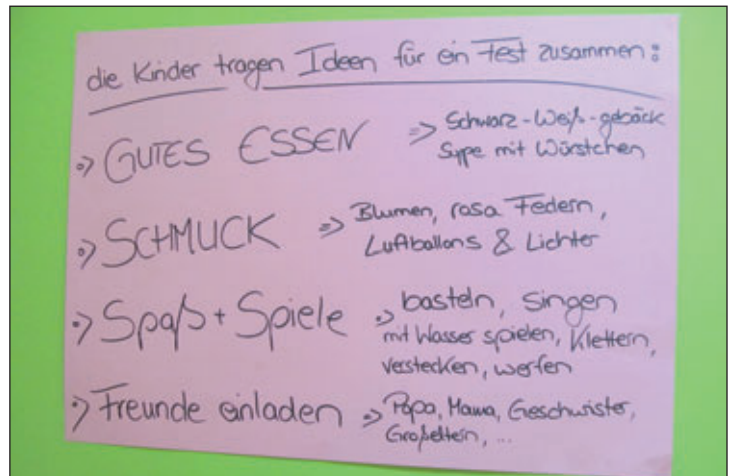 die Kinder tragen Ideen für ein Fest zusammen:
•> GUTES ESSEN => Schwarz-Weiß-gebäck
Suppe mit Würstchen
•> SCHMUCK => Blumen, rosa Federn,
Luftballons & Lichter
•> Spaß + Spiele •> basteln, singen
mit Wasser spielen, Klettern,
verstecken, werfen
•> Freunde einladen => Papa, Mama, Geschwister,
Großeltern, ...